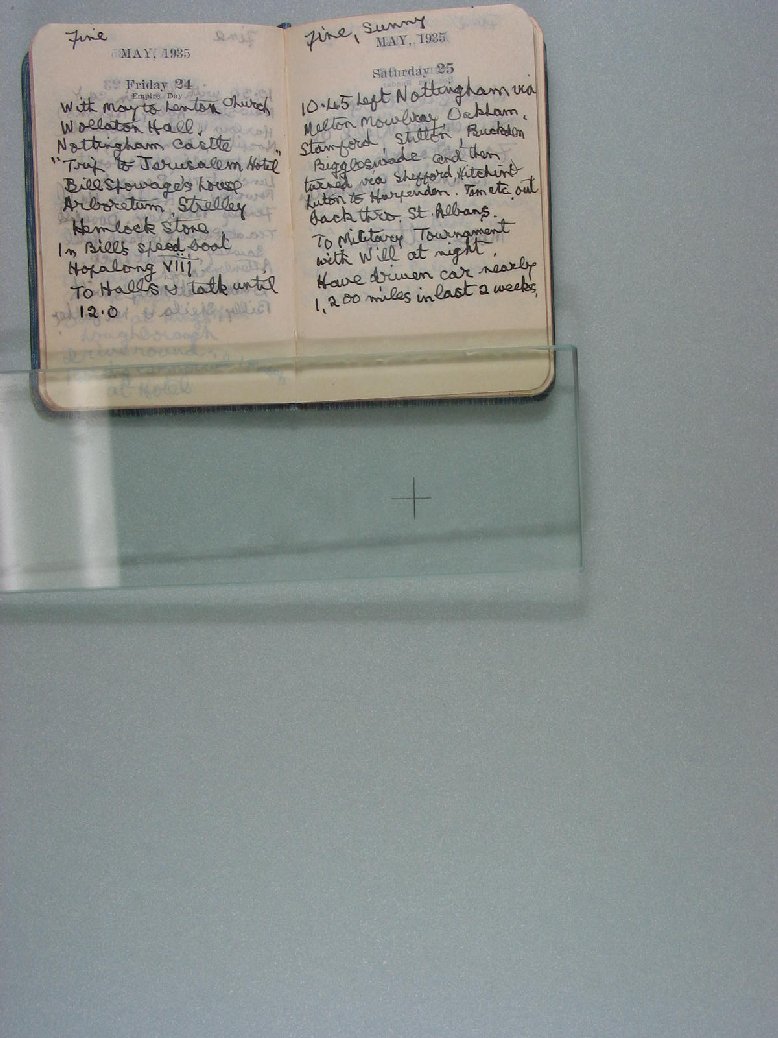 Fine
MAY, 1935
Friday 24
Empire Day
With May to Lenton Church
Wollaton Hall.
Nottingham Castle
"Trip to Jerusalem Hotel"
Bill Spowage's house
Arboretum, Strelley
Hemlock Stone
In Bill's speed boat
Hopalong VIII
To Halls & talk until
12.0
Fine, Sunny
MAY, 1935
Saturday 25
10.45 Left Nottingham via
Melton Mowbray Oakham,
Stamford Stilton, Buckden
Biggleswade and then
turned via Shefford, Hitchin
Luton to Harpenden. out
back thro. St. Albans.
To Military Tournament
with Will at night.
Have driven car nearly
1,200 miles in last 2 weeks.